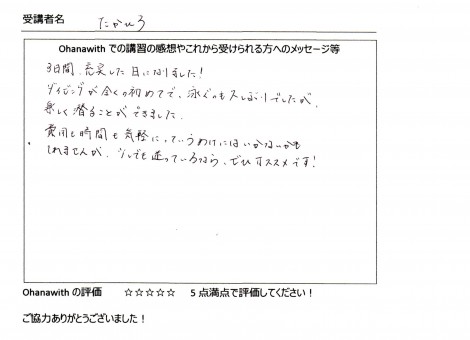 受講者名 たかひろ
Ohanawith での講習の感想やこれから受けられる方へのメッセージ等
3日間、充実した日になりました！
ダイビングが全くの初めてで、泳ぐのも久しぶりでしたが、
楽しく潜ることができました。
費用も時間も気軽に、っていうわけにはいかないかも
しれませんが、少しでも迷っているなら、ぜひオススメです！
Ohanawith の評価 ☆☆☆☆☆ 5 点満点で評価してください！
ご協力ありがとうございました！